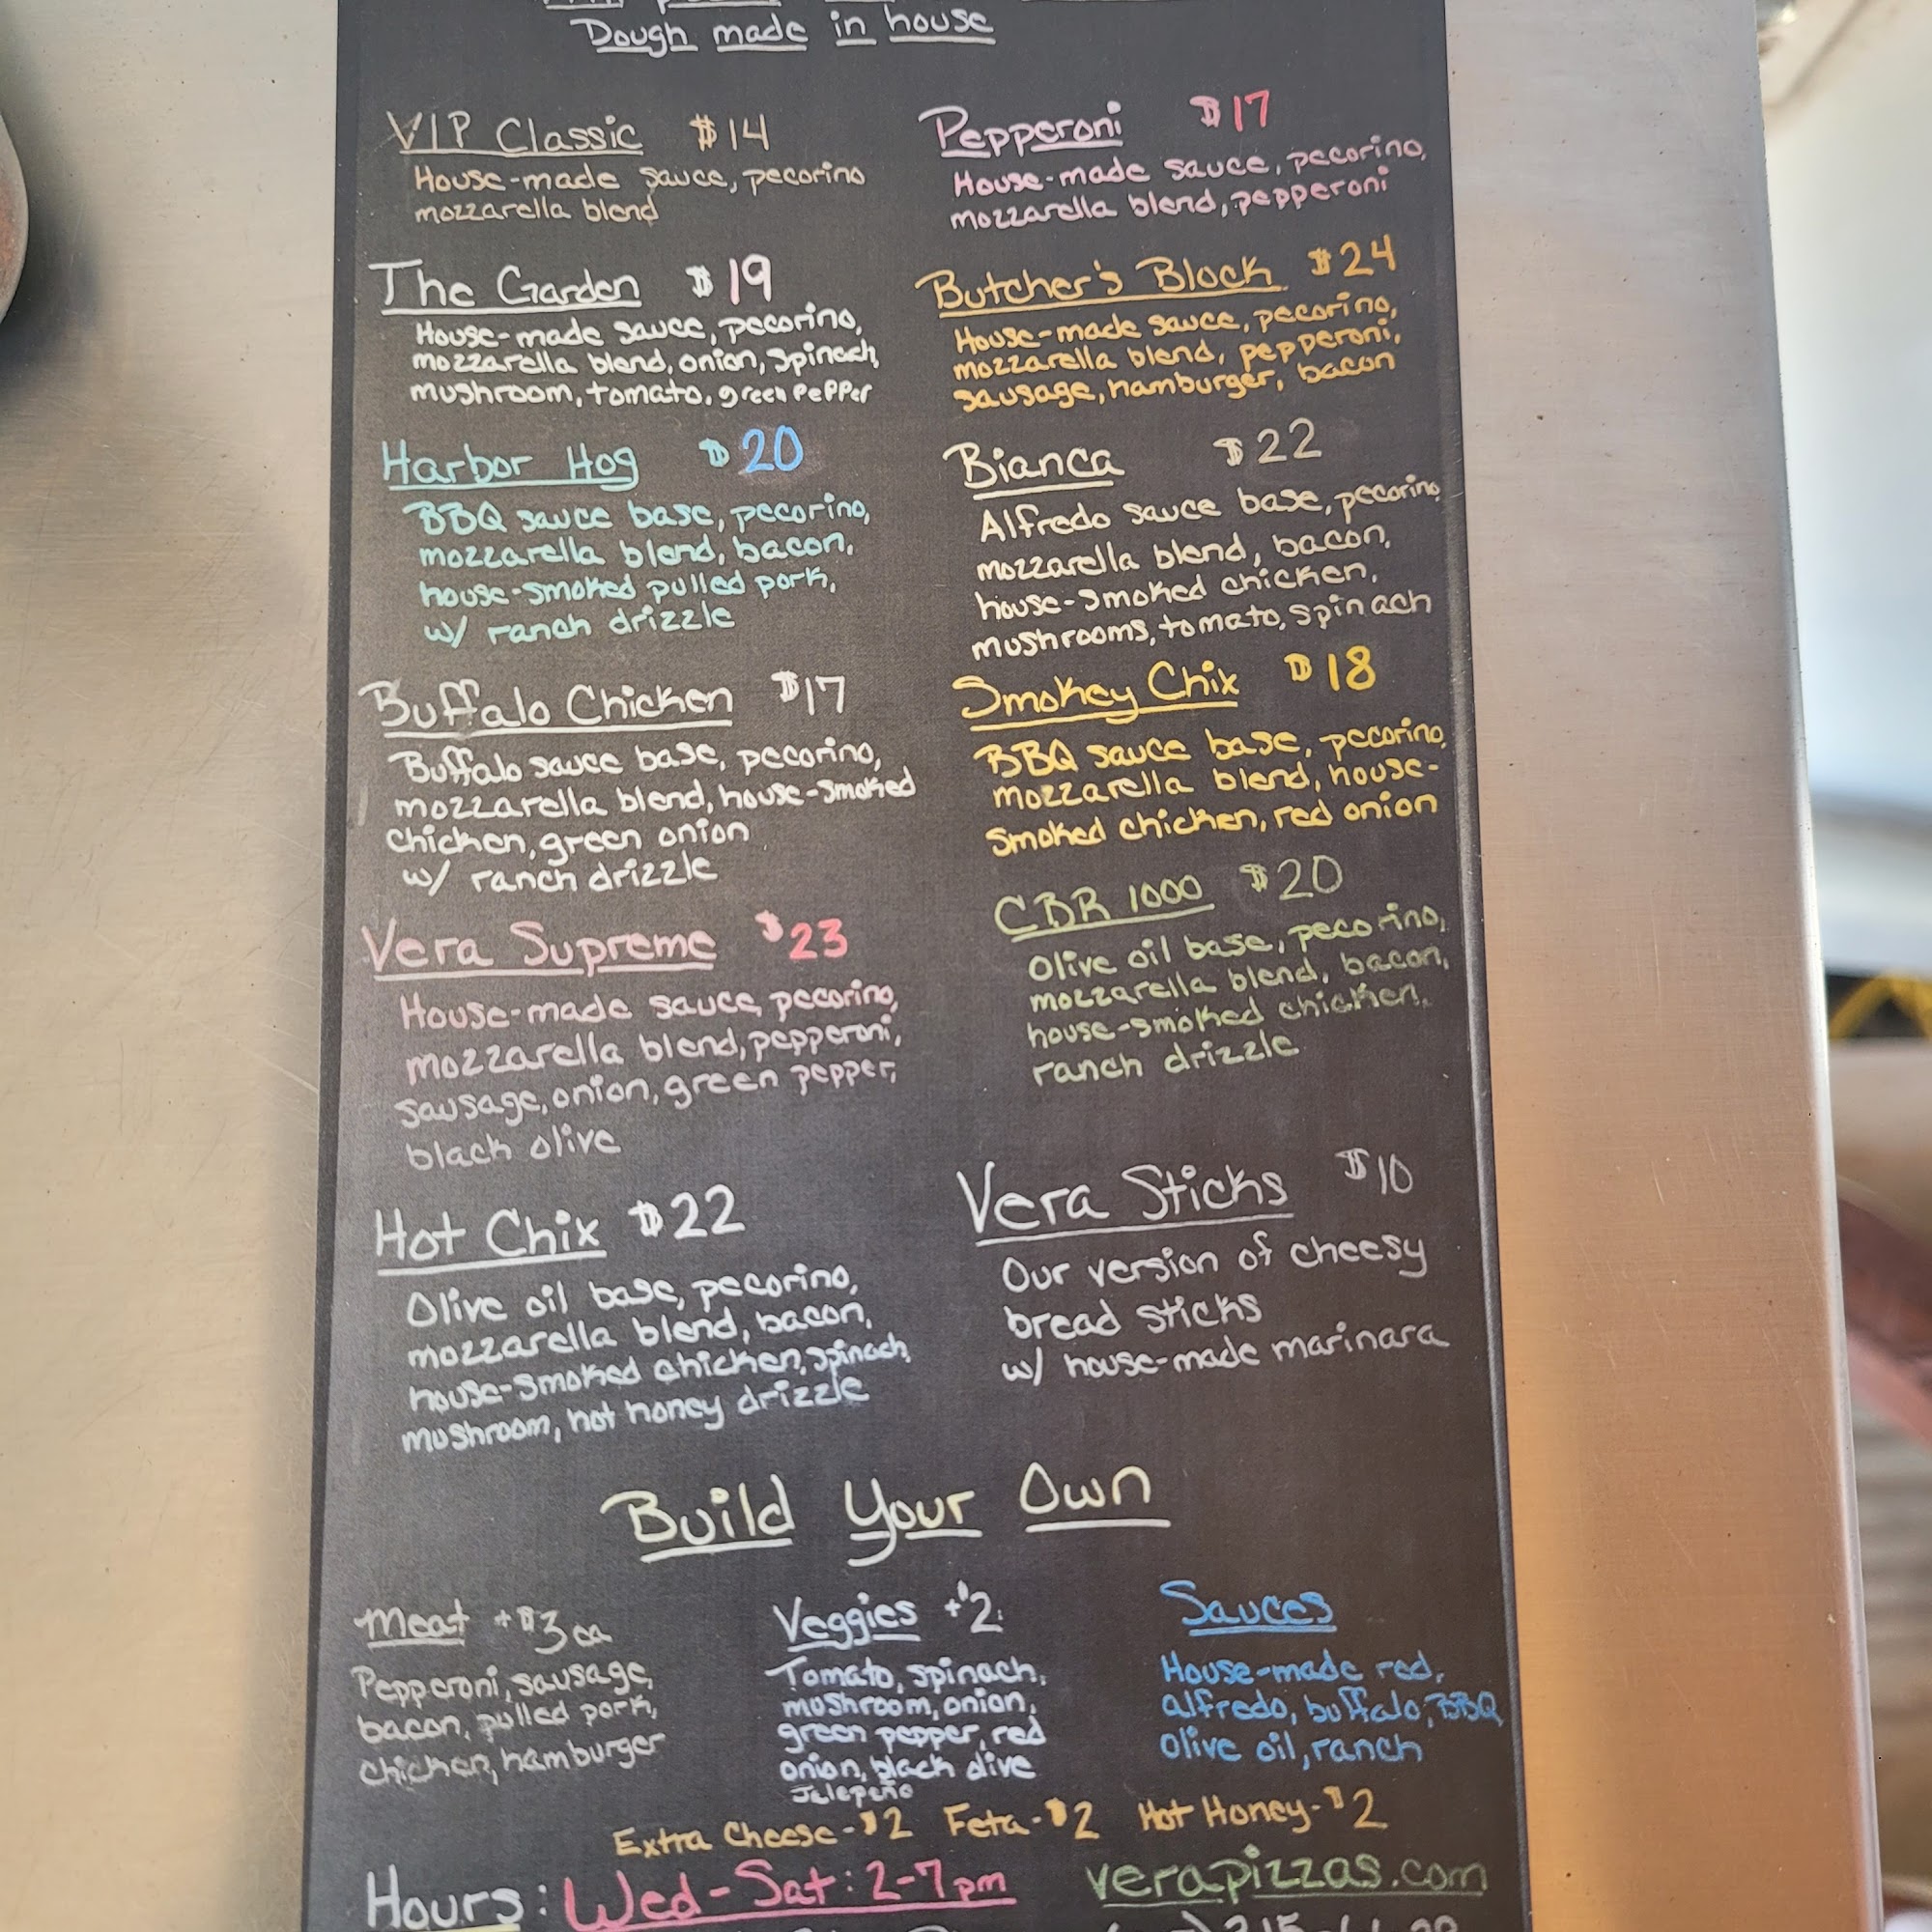 Dough made in house
VIP Classic $14
House-made sauce, pecorino
mozzarella blend
The Garden $19
House-made sauce, pecorino,
mozzarella blend, onion, spinach,
mushroom, tomato, green pepper
Harbor Hog $20
BBQ sauce base, pecorino,
mozzarella blend, bacon,
house-smoked pulled pork,
w/ ranch drizzle
Buffalo Chicken $17
Buffalo sauce base, pecorino,
mozzarella blend, house-smoked
chicken, green onion
w/ ranch drizzle
Vera Supreme $23
House-made sauce, pecorino,
mozzarella blend, pepperoni,
sausage, onion, green pepper,
black olive
Hot Chix $22
Olive oil base, pecorino,
mozzarella blend, bacon,
house-smoked chicken, spinach,
mushroom, hot honey drizzle
Pepperoni $17
House-made sauce, pecorino,
mozzarella blend, pepperoni
Butcher's Block $24
House-made sauce, pecorino,
mozzarella blend, pepperoni,
sausage, hamburger, bacon
Bianca $22
Alfredo sauce base, pecorino,
mozzarella blend, bacon,
house-smoked chicken,
mushrooms, tomato, spinach
Smokey Chix $18
BBQ sauce base, pecorino,
mozzarella blend, house-
smoked chicken, red onion
CBR 1000 $20
Olive oil base, pecorino,
mozzarella blend, bacon,
house-smoked chicken,
ranch drizzle
Vera Sticks $10
Our version of cheesy
bread sticks
w/ house-made marinara
Build Your Own
Meat +$3 ea
Pepperoni, sausage,
bacon, pulled pork,
chicken, hamburger
Veggies +$2
Tomato, spinach,
mushroom, onion,
green pepper, red
onion, black olive
Jalepeño
Sauces
House-made red,
alfredo, buffalo, BBQ,
olive oil, ranch
Extra Cheese-$2 Feta-$2 Hot Honey-$2
Hours: Wed-Sat: 2-7pm
verapizzas.com